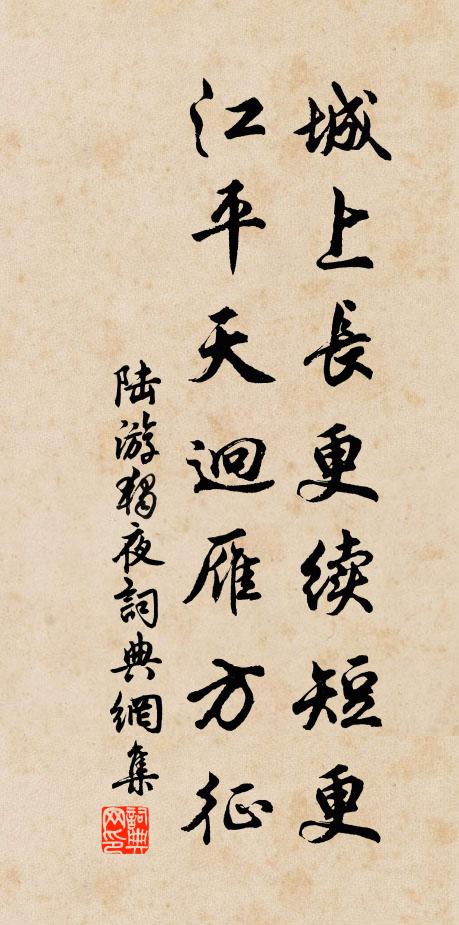 城上長更续短更
江平天迥雁方征
陆游獨夜詞典網集
詞典网印